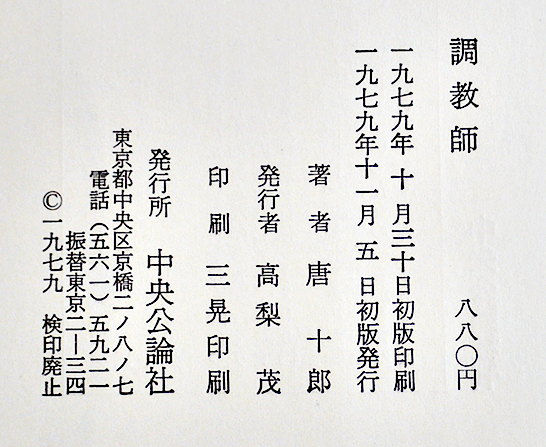 調教師　八八〇円
一九七九年十月三十日初版印刷
一九七九年十一月五日初版発行
著者　唐十郎
発行者　高梨茂
印刷　三晃印刷
発行所　中央公論社
東京都中央区京橋二ノ八ノ七
電話（五六一）五九二一
振替東京二―三四
©一九七九　検印廃止